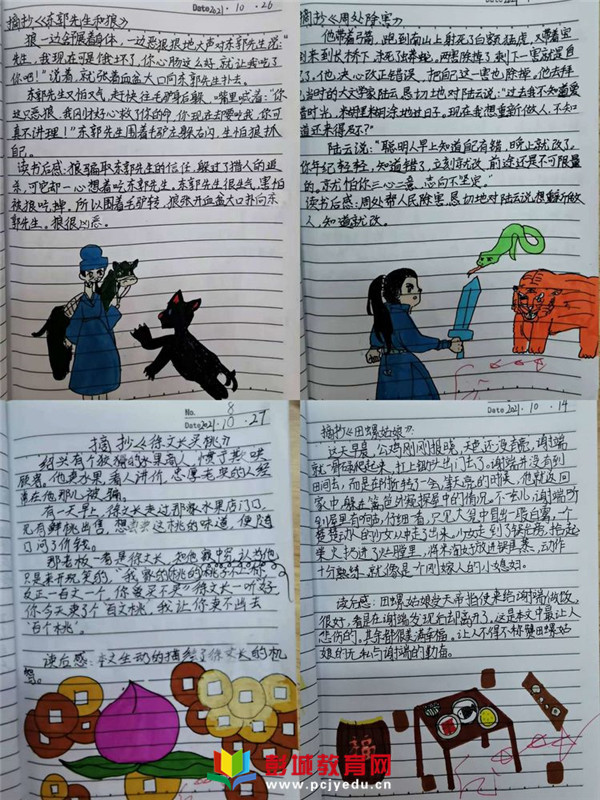 Date 2021.10.26
摘抄《东郭先生和狼》
狼一边舒展着身体,一边恶狠狠地大声对东郭先生说:"
先生,我现在可是饿坏了,你心肠这么好,就让我吃了
你吧!"说着,就张着血盆大口向东郭先生扑去。
东郭先生又怕又气,赶快往毛驴身后躲,嘴里喊着:"你
这只恶狼,我刚才好心救了你的命,你现在却要吃我,你可
真不讲理!"东郭先生围着毛驴左躲右闪,生怕狼抓
自己。
读书后感:狼骗取东郭先生的信任,躲过了猎人的追
杀,可它却一心想着吃东郭先生,东郭先生很生气,害怕
被狼吃掉,所以围着毛驴转,狼张开血盆大口扑向东
郭先生。狼很凶恶。
摘抄《周处除害》
他带着弓箭,跑到南山上射死了白额猛虎,又带着宝
到来到长桥下,杀死了蛟
了,他,决心改正错误,把自己这一害也除掉,他去拜
当时的大文学家陆云,恳切地对陆云说:"过去我不知道爱
惜时光,糊里糊涂地过日子。现在我想重新做人,不知
道还来得及不?"
陆云说:"聪明人早上知道自己有错,晚上就改了。
你年纪轻轻,知道错了,立刻就改,前途还是不可限量
的。就怕你三心二意,志向不坚定。"
读书后感:周处帮人民除害,恳切地对陆云说想重新做
人,知道就改。
No. 8
Date 2021.10.27
摘抄《徐文长买桃》
绍兴有个狡猾的水果商人,惯于欺哄
顾客,他卖水果,看人讲价,忠厚老实的人经
常在他那儿被骗。
有一天早上,徐文长走过那家水果店门口,
见有鲜桃出售,想
这桃的味道,便随
口问了价钱。
那老板一看是徐文长,知他
只是来开玩笑的,"我
反正一百文一个,你要买不买"徐文长一听"好
你今天卖了个百文桃,我让你卖不出去
百个桃"。
读后感:本文生动的描绘了徐文长的机
智。
Date 2021.10.14
摘抄《田螺姑娘》
这天早晨,公鸡刚刚报晓,天色还没有亮,谢端
就一骨碌爬起来,扛上锄头出门去了。谢端并没有到
田间去,而是在外面转了一会,等天亮的时候,他就返回
家中,躲在篱笆外窥探屋中的情况。不一会儿,谢端听
到屋里有响声,仔细看,只见大瓮中冒出一股白雾,一个
少女从中走了出来。少女走到了锅台旁,抱起
柴火扔进了灶膛里,将米淘好放进锅里蒸,动作
十分熟练,就像是个刚嫁人的小媳妇。
读后感:田螺姑娘受天帝指使来给谢端做饭,
很好,看是在谢端发现后却离开了,这是本文中最让人
悲伤的。其余都很美满幸福。让人不得不称赞田螺姑
娘的无私与谢端的勤奋。
福
彭城教育网
www.pcjyedu.cn